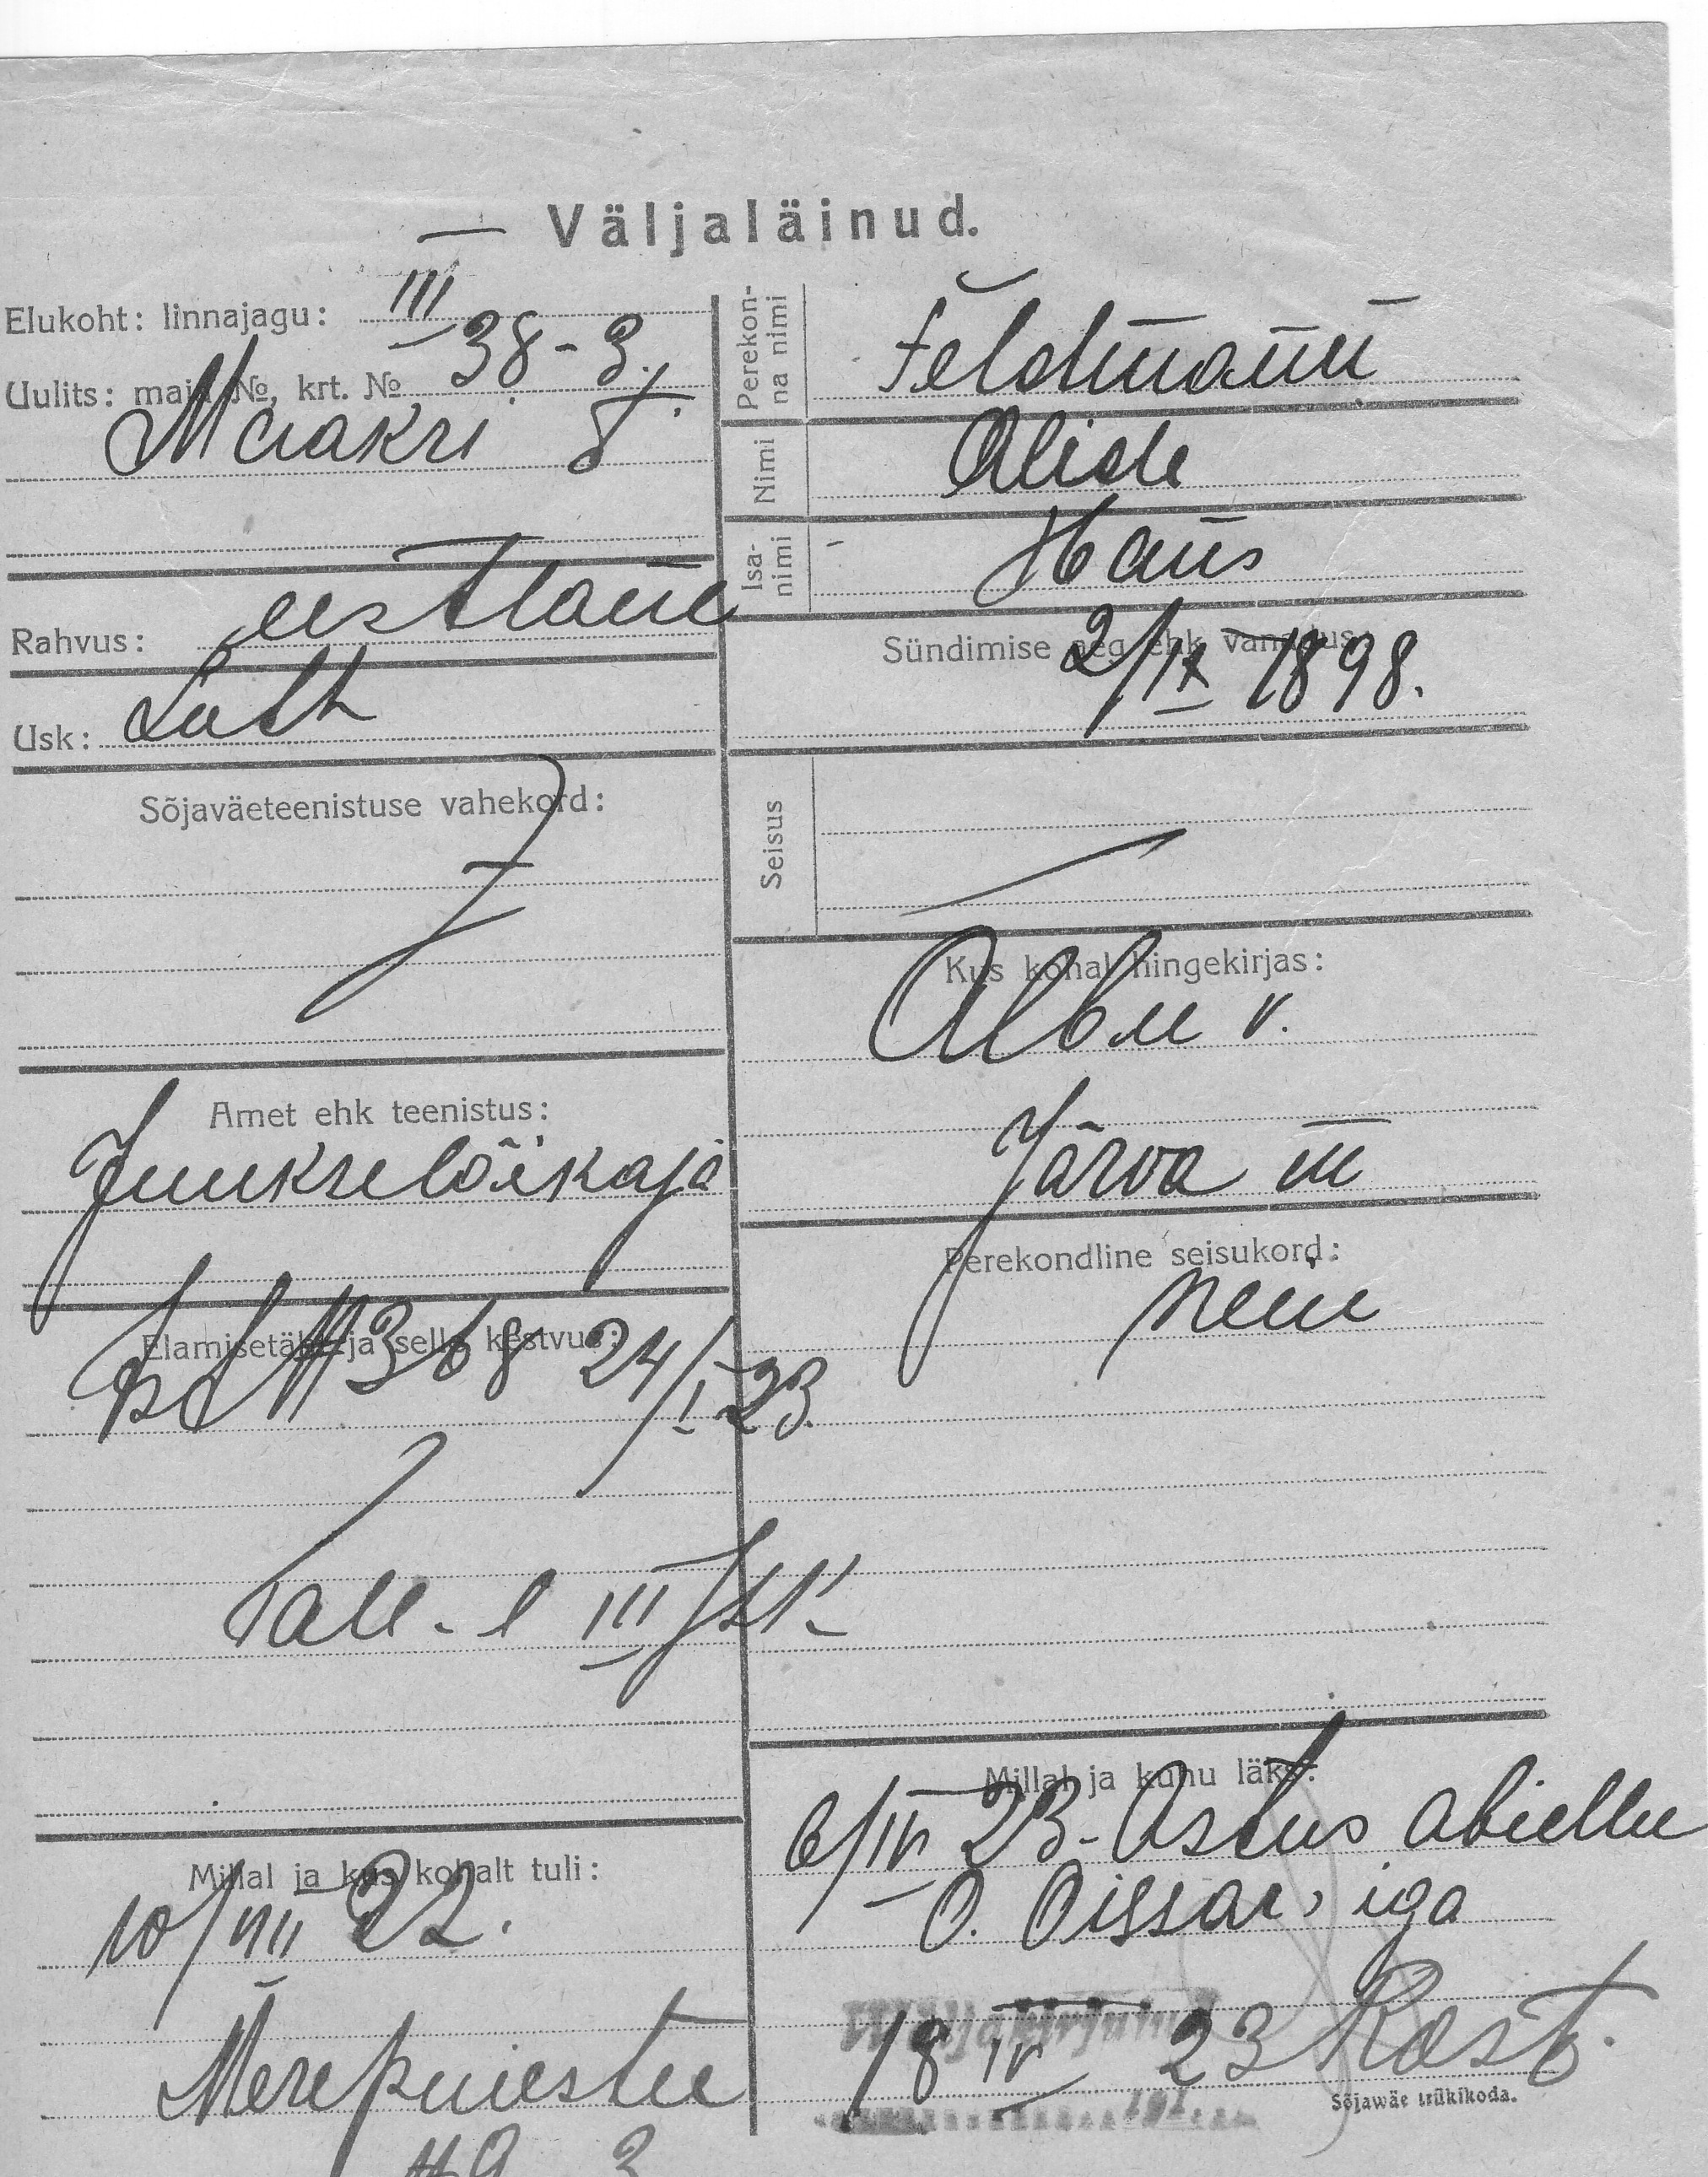 Väljaläinud.
Elukoht: linnajagu: III
Uulits: maja №, krt. № 38-3.
Maakri t.
Rahvus: eestlane
Usk: Luth
Sõjaväeteenistuse vahekord:
Amet ehk teenistus:
Juukselõikaja
Elamisetäht ja selle kestvus:
368 24/I 23.
Tall-l III jsk.
Millal ja kus kohalt tuli:
10/VIII 22.
Merepuiestee
Perekonna nimi
Feldmann
Nimi
Aliide
Isanimi
Hans
Sündimise aeg ehk vanadus
2/IX 1898.
Seisus
Kus kohal hingekirjas:
Albu v.
Järva m
Perekondline seisukord:
neiu
Millal ja kuhu läks:
6/IV 23. Astus abiellu
O. Oissar'iga
Väljakirjutud
18 IV 23
191
Sõjawäe trükikoda.